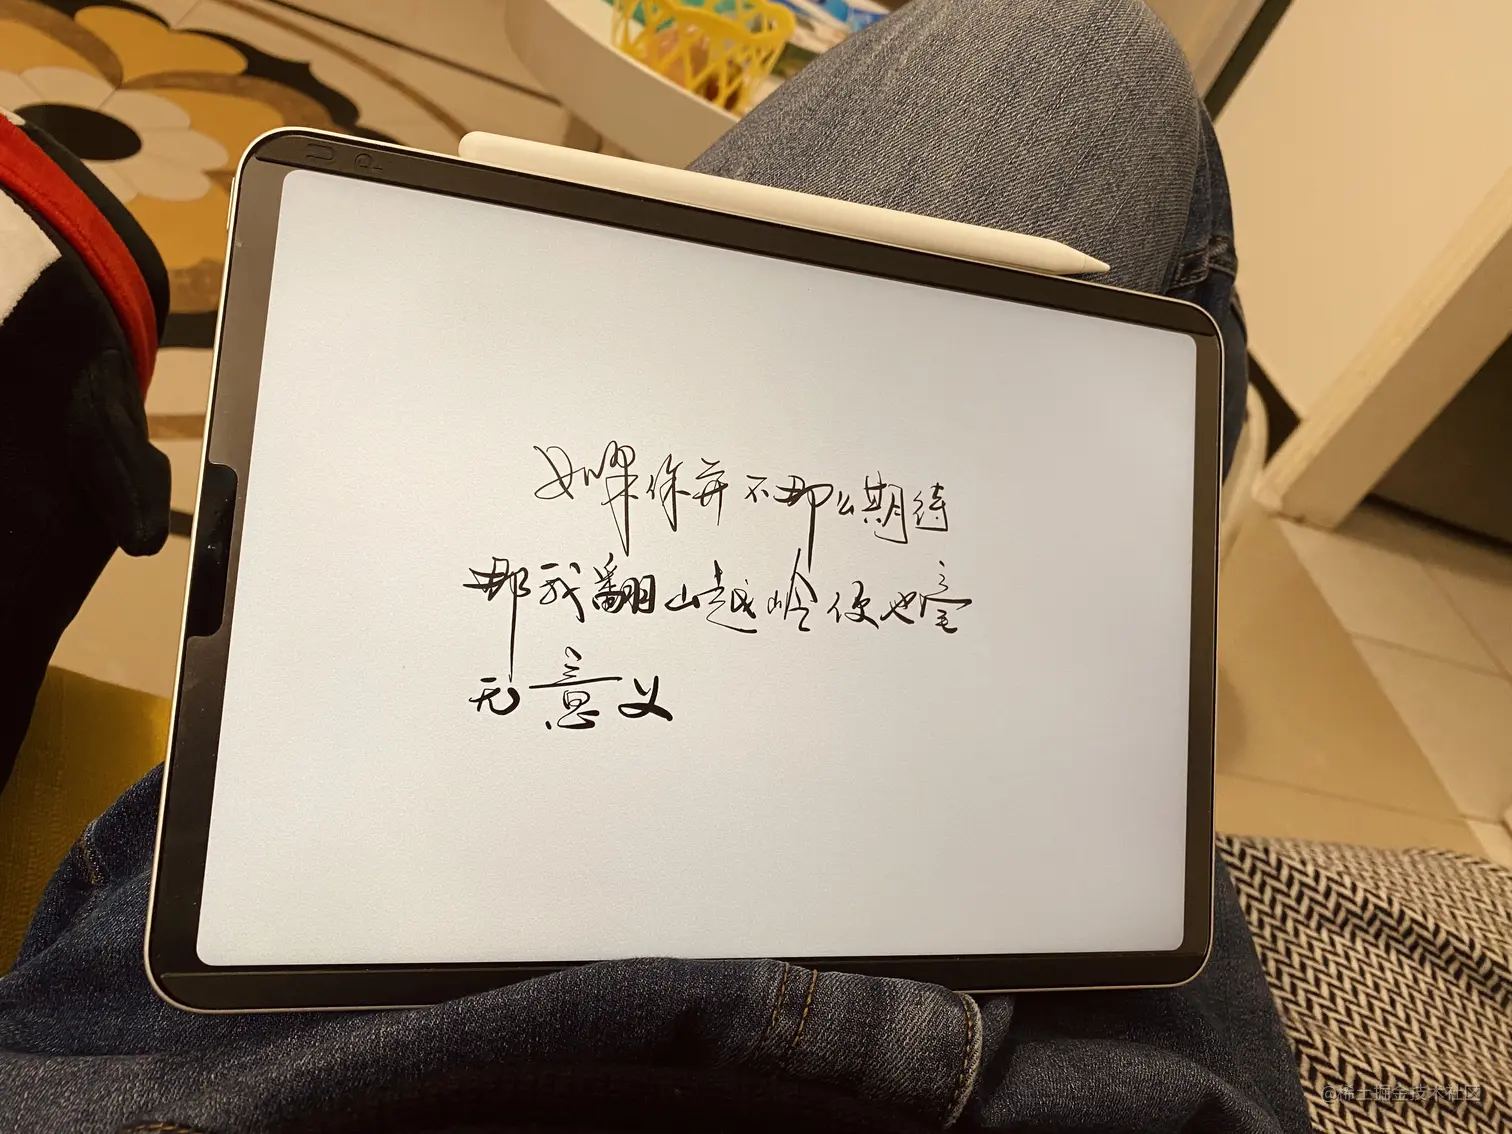 如果你并不那么期待
那我翻山越岭便也毫
无意义
@稀土掘金技术社区